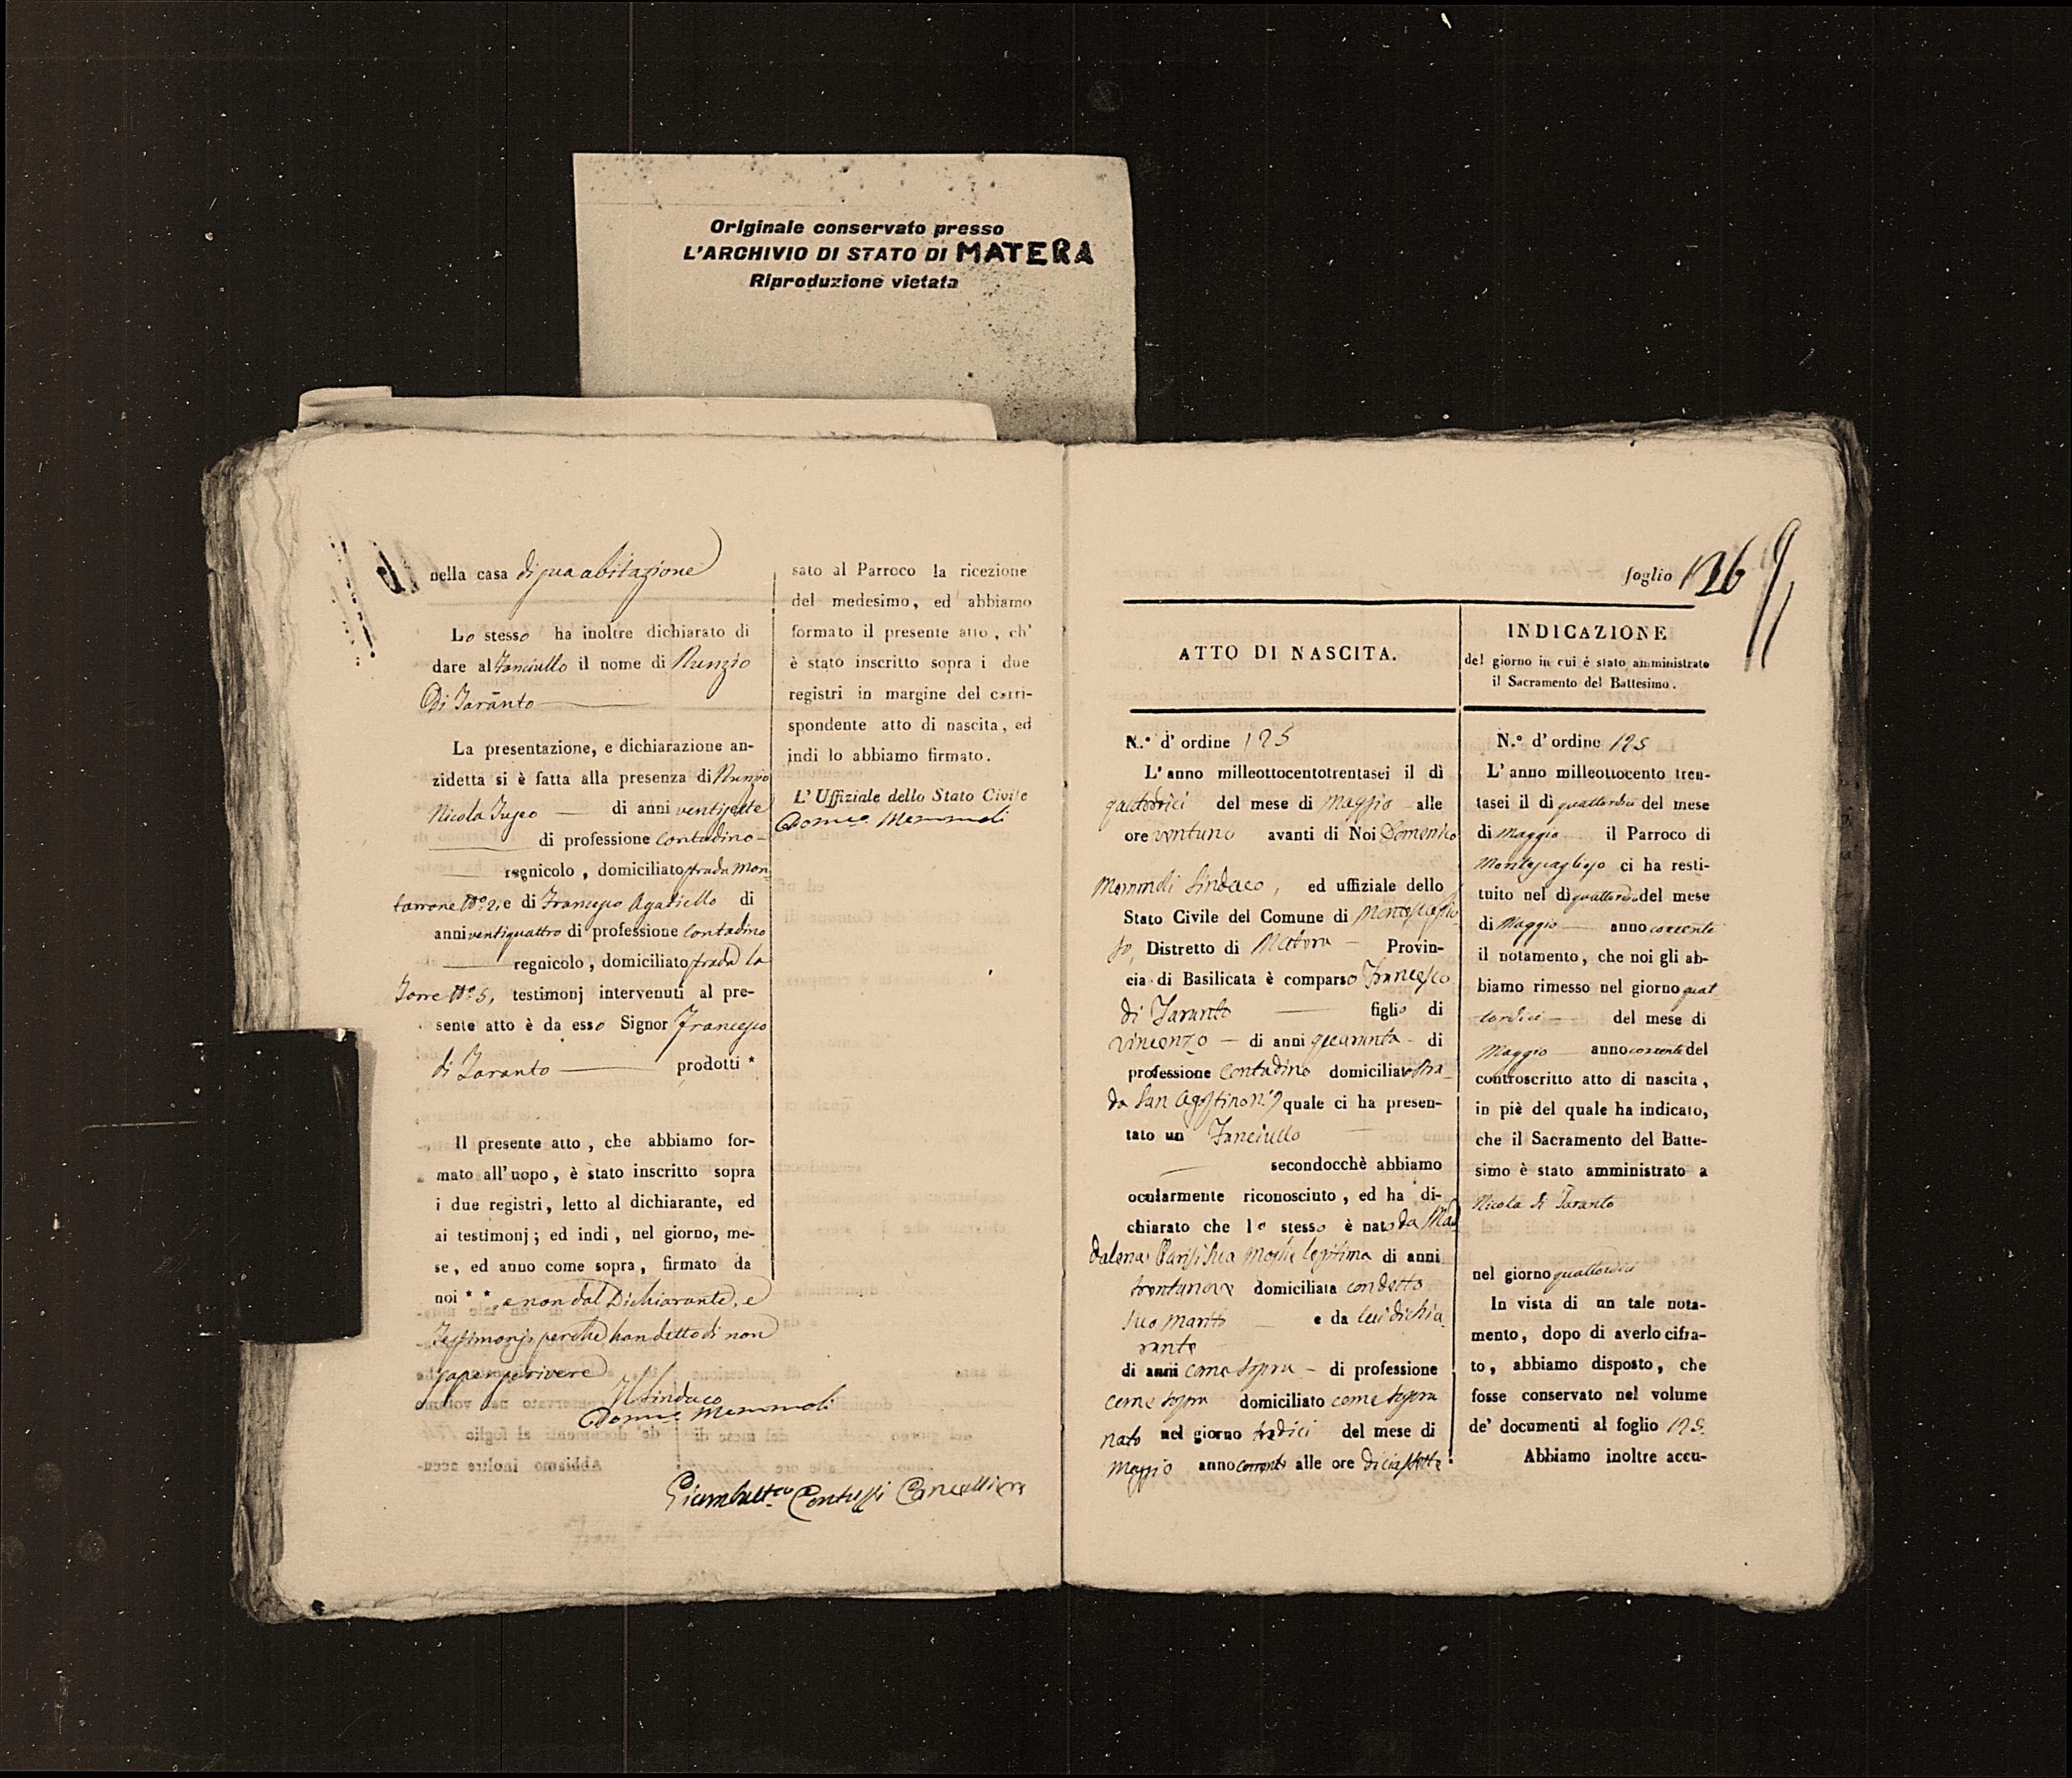 Originale conservato presso
L'ARCHIVIO DI STATO DI MATERA
Riproduzione vietata
nella casa di sua abitazione
Lo stesso ha inoltre dichiarato di
dare al fanciullo il nome di Nunzio
Di Taranto
La presentazione, e dichiarazione an-
zidetta si è fatta alla presenza di Nunzio
Nicola di anni ventisette
di professione contadino
regnicolo, domiciliato strada Mon
tarrone N.° 2, e di Francesco Agatiello di
anni ventiquattro di professione contadino
regnicolo, domiciliato strada la
Torre N.° 5, testimonj intervenuti al pre-
sente atto è da esso Signor Francesco
di Taranto prodotti *
Il presente atto, che abbiamo for-
mato all'uopo, è stato inscritto sopra
i due registri, letto al dichiarante, ed
ai testimonj; ed indi, nel giorno, me-
se, ed anno come sopra, firmato da
noi * * e non dal Dichiarante, e
Testimonj perché han detto di non
saper scrivere
Il Sindaco
Dom.co Memmoli
Giambatt.a Contuzzi Cancelliere
sato al Parroco la ricezione
del medesimo, ed abbiamo
formato il presente atto, ch'
è stato inscritto sopra i due
registri in margine del corri-
spondente atto di nascita, ed
indi lo abbiamo firmato.
L'Uffiziale dello Stato Civile
Dom.co Memmoli
foglio 126
ATTO DI NASCITA.
N.° d'ordine 125
L'anno milleottocentotrentasei il dì
quattordici del mese di Maggio alle
ore ventuno avanti di Noi Domenico
Memmoli Sindaco, ed uffiziale dello
Stato Civile del Comune di Montescaglio
so, Distretto di Matera Provin-
cia di Basilicata è comparso Francesco
di Taranto figlio di
Vincenzo di anni quaranta di
professione contadino domiciliato stra
da San Agostino n.° 9 quale ci ha presen-
tato un fanciullo
secondocchè abbiamo
ocularmente riconosciuto, ed ha di-
chiarato che lo stesso è nato da Mad
dalena Parisi sua moglie legitima di anni
trentanove domiciliata con detto
suo marito e da lui dichia
rante
di anni come sopra di professione
come sopra domiciliato come sopra
nato nel giorno tredici del mese di
Maggio anno corrente alle ore diciasette
INDICAZIONE
del giorno in cui è stato amministrato
il Sacramento del Battesimo.
N.° d'ordine 125
L'anno milleottocento tren-
tasei il dì quattordici del mese
di Maggio il Parroco di
Montescaglioso ci ha resti-
tuito nel dì quattordici del mese
di Maggio anno corrente
il notamento, che noi gli ab-
biamo rimesso nel giorno quat
tordici del mese di
Maggio anno corrente del
controscritto atto di nascita,
in piè del quale ha indicato,
che il Sacramento del Batte-
simo è stato amministrato a
Nicola di Taranto
nel giorno quattordici
In vista di un tale nota-
mento, dopo di averlo cifra-
to, abbiamo disposto, che
fosse conservato nel volume
de' documenti al foglio 125.
Abbiamo inoltre accu-